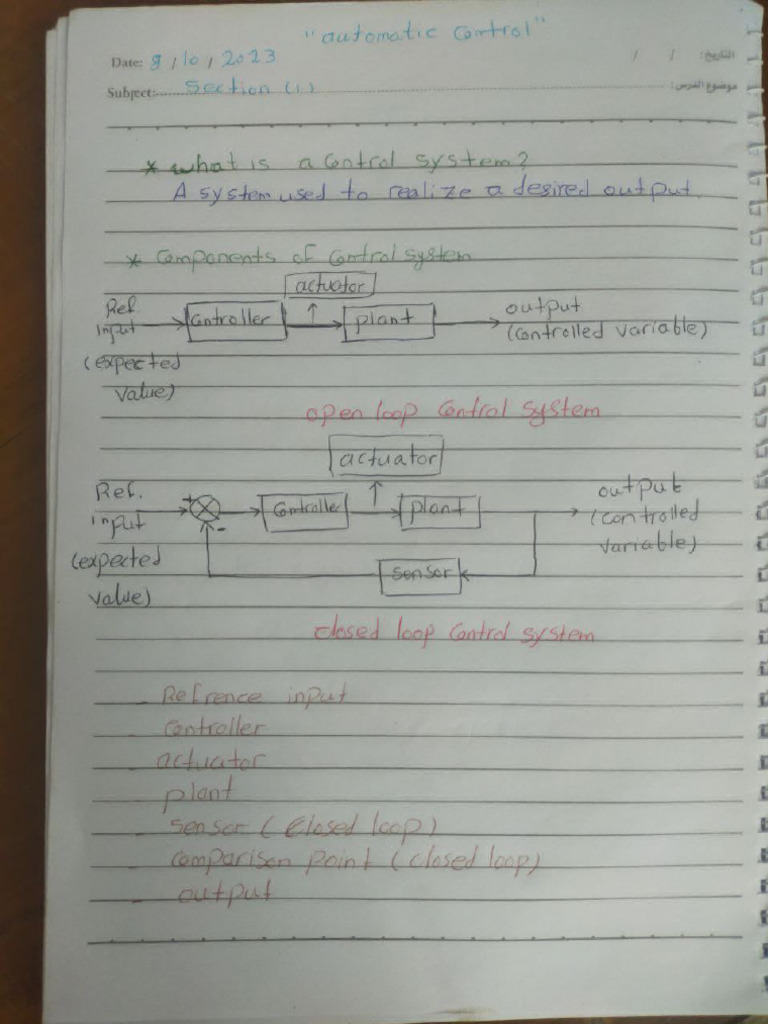 "automatic Control"
Date: 8 / 10 / 2023 / / التاريخ:
Subject: Section (1) موضوع الدرس:
* what is a Control system?
A system used to realize a desired output.
* Components of Control system
actuator
Ref. input
(expected value)
Controller
plant
output
(Controlled variable)
open loop Control system
actuator
Ref. input
(expected value)
+
-
Controller
plant
output
(Controlled variable)
sensor
closed loop Control system
- Refrence input
- Controller
- actuator
- plant
- sensor (Closed loop)
- Comparison point (closed loop)
- output